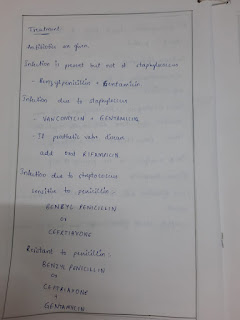 Treatment:
Antibiotics are given
Infection is present but not d staphylococcus
- Benzylpenicillin + Gentamicin
Infection due to staphylococcus
- VANCOMYCIN + GENTAMICIN
- If prosthetic valve disease
add oral RIFAMPICIN
Infection due to streptococcus
sensitive to penicillin:
BENZYL PENICILLIN
or
CEFTRIAXONE
Resistant to penicillin:
BENZYL PENICILLIN
or
CEFTRIAXONE
+
GENTAMYCIN